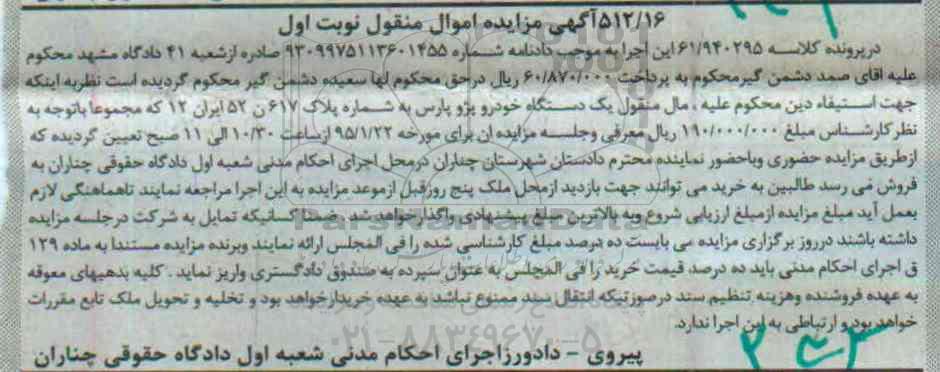 ۵۱۲/۱۶آگهی مزایده اموال منقول نوبت اول
درپرونده کلاسه ۶۱/۹۴۰۲۹۵ این اجرا به موجب دادنامه شماره ۹۳۰۹۹۷۵۱۱۳۶۰۱۴۵۵ صادره ازشعبه ۴۱ دادگاه مشهد محکوم
علیه اقای صمد دشمن گیرمحکوم به پرداخت ۶۰/۸۷۰/۰۰۰ ریال درحق محکوم لها سعیده دشمن گیر محکوم گردیده است نظربه اینکه
جهت استیفاء دین محکوم علیه ، مال منقول یک دستگاه خودرو پژو پارس به شماره پلاک ۶۱۷ن ۵۲ ایران ۱۲ که مجموعا باتوجه به
نظرکارشناس مبلغ ۱۹۰/۰۰۰/۰۰۰ ریال معرفی وجلسه مزایده ان برای مورخه ۹۵/۱/۲۲ ازساعت ۱۰/۳۰ الی ۱۱ صبح تعیین گردیده که
ازطریق مزایده حضوری وباحضور نماینده محترم دادستان شهرستان چناران درمحل اجرای احکام مدنی شعبه اول دادگاه حقوقی چناران به
فروش می رسد طالبین به خرید می توانند جهت بازدید ازمحل ملک پنج روزقبل ازموعد مزایده به این اجرا مراجعه نمایند تاهماهنگی لازم
بعمل آید مبلغ مزایده ازمبلغ ارزیابی شروع وبه بالاترین مبلغ پیشنهادی واگذارخواهد شد . ضمنا کسانیکه تمایل به شرکت درجلسه مزایده
داشته باشند درروز برگزاری مزایده می بایست ده درصد مبلغ کارشناسی شده را فی المجلس ارائه نمایند وبرنده مزایده مستندا به ماده ۱۲۹
ق اجرای احکام مدنی باید ده درصد قیمت خرید را فی المجلس به عنوان سپرده به صندوق دادگستری واریز نماید . کلیه بدهیهای معوقه
به عهده فروشنده وهزینه تنظیم سند درصورتیکه انتقال سند ممنوع نباشد به عهده خریدارخواهد بود و تخلیه و تحویل ملک تابع مقررات
خواهد بود و ارتباطی به این اجرا ندارد.
پیروی - دادورزاجرای احکام مدنی شعبه اول دادگاه حقوقی چناران
ParsNamadData
۰۲۱-۸۸۳۴۹۶۷۰-۵